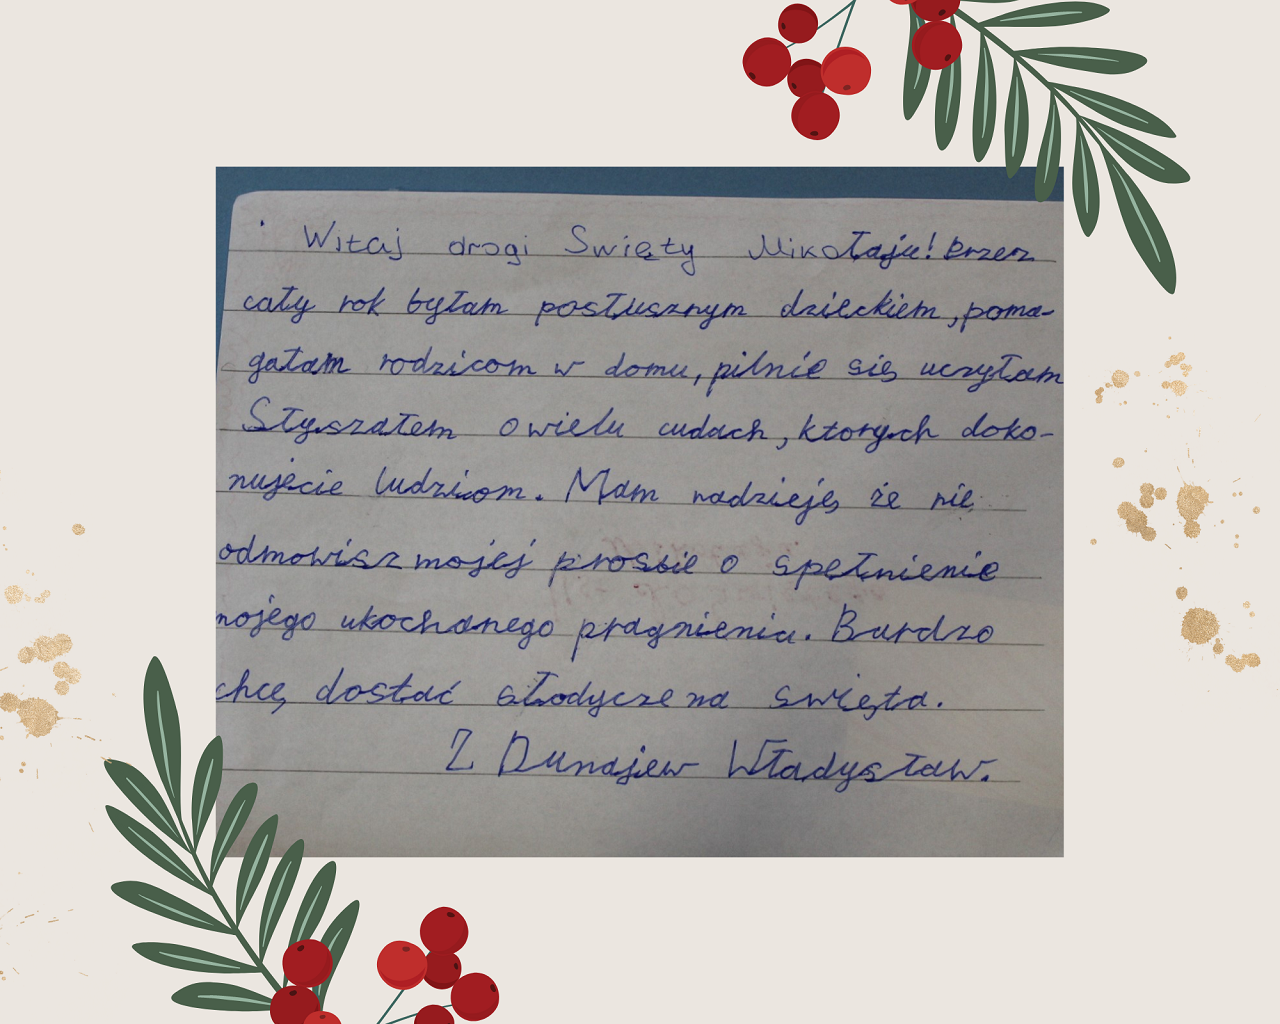 Witaj drogi Swięty Mikołaju! Przez
cały rok byłam posłusznym dzieckiem, poma-
gałam rodzicom w domu, pilnie się uczyłam
Słyszałem o wielu cudach, ktorych doko-
nujecie ludziom. Mam nadzieję że nie
odmowisz mojej prosbie o spełnienie
mojego ukochanego pragnienia. Bardzo
chcę dostać słodycze na swięta.
Z Dunajew Władysław.